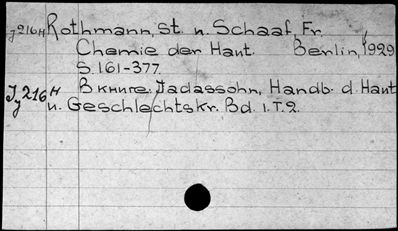 J216H Rothmann, St. n. Schaaf, Fr.
y
Chemie der Haut. Berlin, 1929
S. 161-377.
J216H В книге: Jadassohn, Handb. d. Haut
y u. Geschlechtskr. Bd. 1. T. 2.